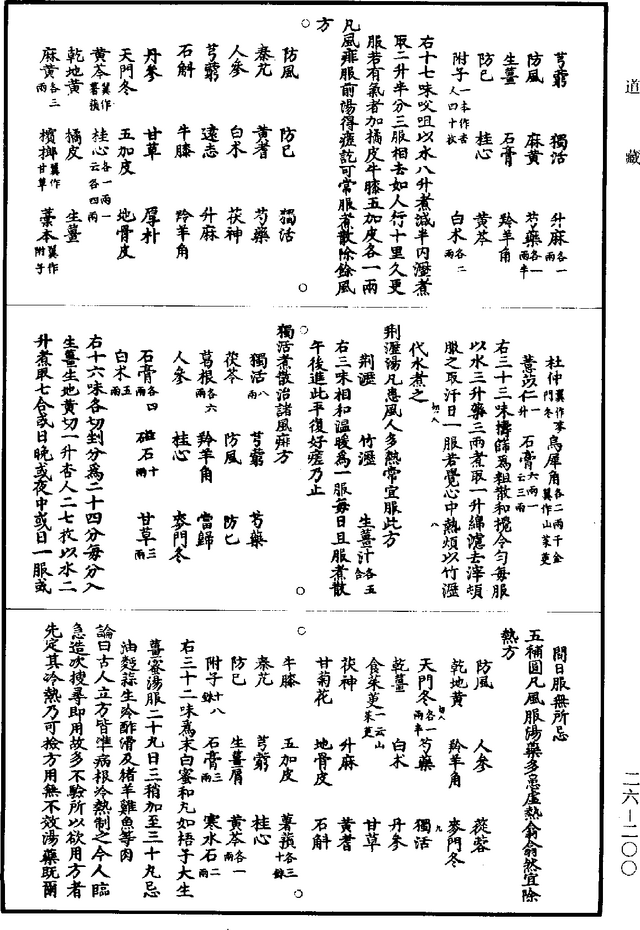 道藏
芎藭 獨活 升麻各一兩
防風 麻黃 芍藥各一兩半
生薑 石膏 羚羊角
防已 桂心 黃芩
附子一本作杏人四十枚 白术各二兩
右十七味㕮咀以水八升煮減半內瀝煮
取二升半分三服相去如人行十里久更
服若有氣者加橘皮牛膝五加皮各一兩
凡風痱服前湯得瘥訖可常服煮散除餘風
方
防風 防已 獨活
秦艽 黃耆 芍藥
人參 白术 茯神
芎藭 遠志 升麻
石斛 牛膝 羚羊角
丹參 甘草 厚朴
天門冬 五加皮 地骨皮
黃芩翼作署蕷 桂心各一兩一云各四兩
乾地黃 橘皮 生薑
麻黃各三兩 檳榔翼作甘草 藁本翼作附子
杜仲翼作麥門冬 烏犀角各二兩千金翼作山茱萸
薏苡仁一升 石膏六兩一云三兩
右三十三味擣篩為粗散和攪令勻每服
以水三升藥三兩煮取一升綿濾去滓頓
服之取汗日一服若覺心中熱煩以竹瀝
代水煮之
荊瀝湯凡患風人多熱常宜服此方
荊瀝 竹瀝 生薑汁各五合
右三味相和溫暖為一服每日且服煮散
午後進此平復好瘥乃止
獨活煮散治諸風痱方
獨活八兩 芎藭 芍藥
茯苓 防風 防已
葛根各六兩 羚羊角 當歸
人參 桂心 麥門冬
石膏各四兩 磁石十兩 甘草三兩
白术五兩
右十六味各切剉分為二十四分每分入
生薑生地黃切一升杏人二七枚以水二
升煮取七合或日晚或夜中或日一服或
間日服無所忌
五補圓凡風服湯藥多患虛熱翕翕然宜除
熱方
防風 人參 蓯蓉
乾地黃 羚羊角 麥門冬
天門冬各一兩半 芍藥 獨活
乾薑 白术 丹參
食茱萸一云山茱萸 甘草
茯神 升麻 黃耆
甘菊花 地骨皮 石斛
牛膝 五加皮 薯蕷各三十銖
秦艽 芎藭 桂心
防已 生薑屑 黃芩各一兩
附子十八銖 石膏三兩 寒水石二兩
右三十二味為末白蜜和丸如梧子大生
薑蜜湯服二十丸日三稍加至三十丸忌
油麪蒜生冷酢滑及猪羊雞魚等肉
論曰古人立方皆準病根冷熱制之今人臨
急造次搜尋即用故多不驗所以欲用方者
先定其冷熱乃可撿方用無不效湯藥既爾
二六-二〇〇